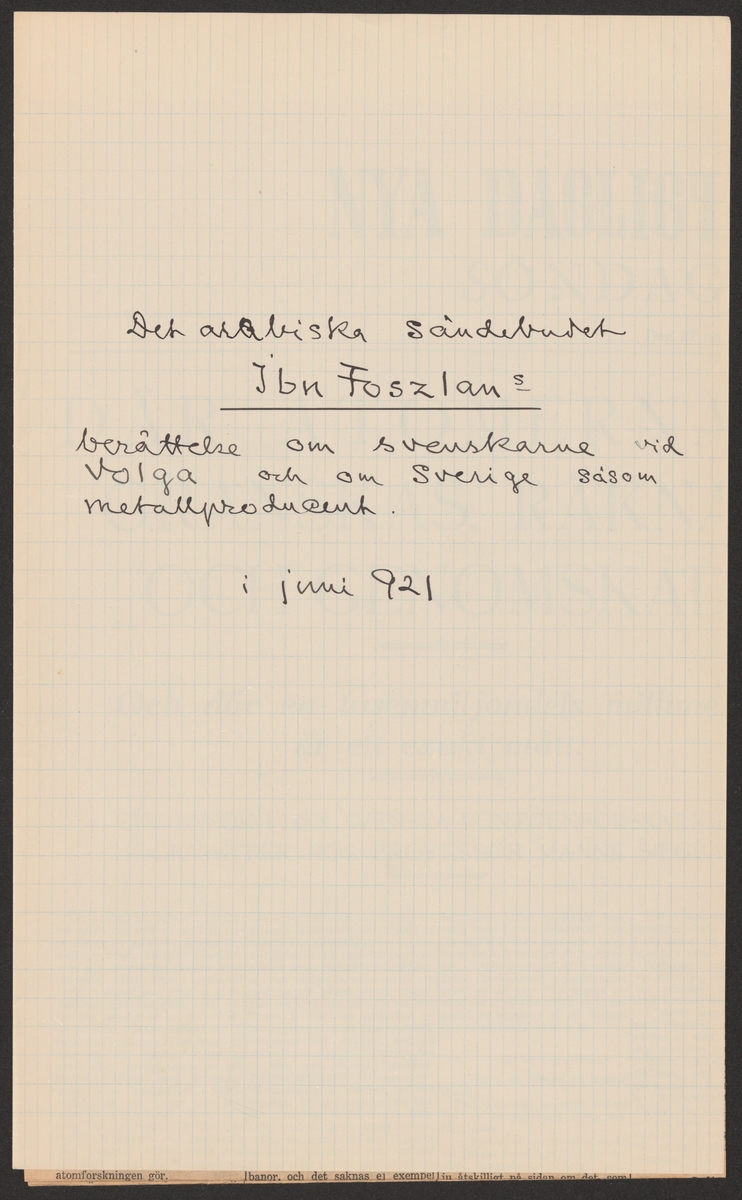 Det arabiska sändebudet
Ibn Foszlans
berättelse om svenskarne vid
Volga och om Sverige såsom
metallproducent.
i juni 921
atomforskningen gör.
banor, och det saknas ej exempel
ju åtskilligt på sidan om det som